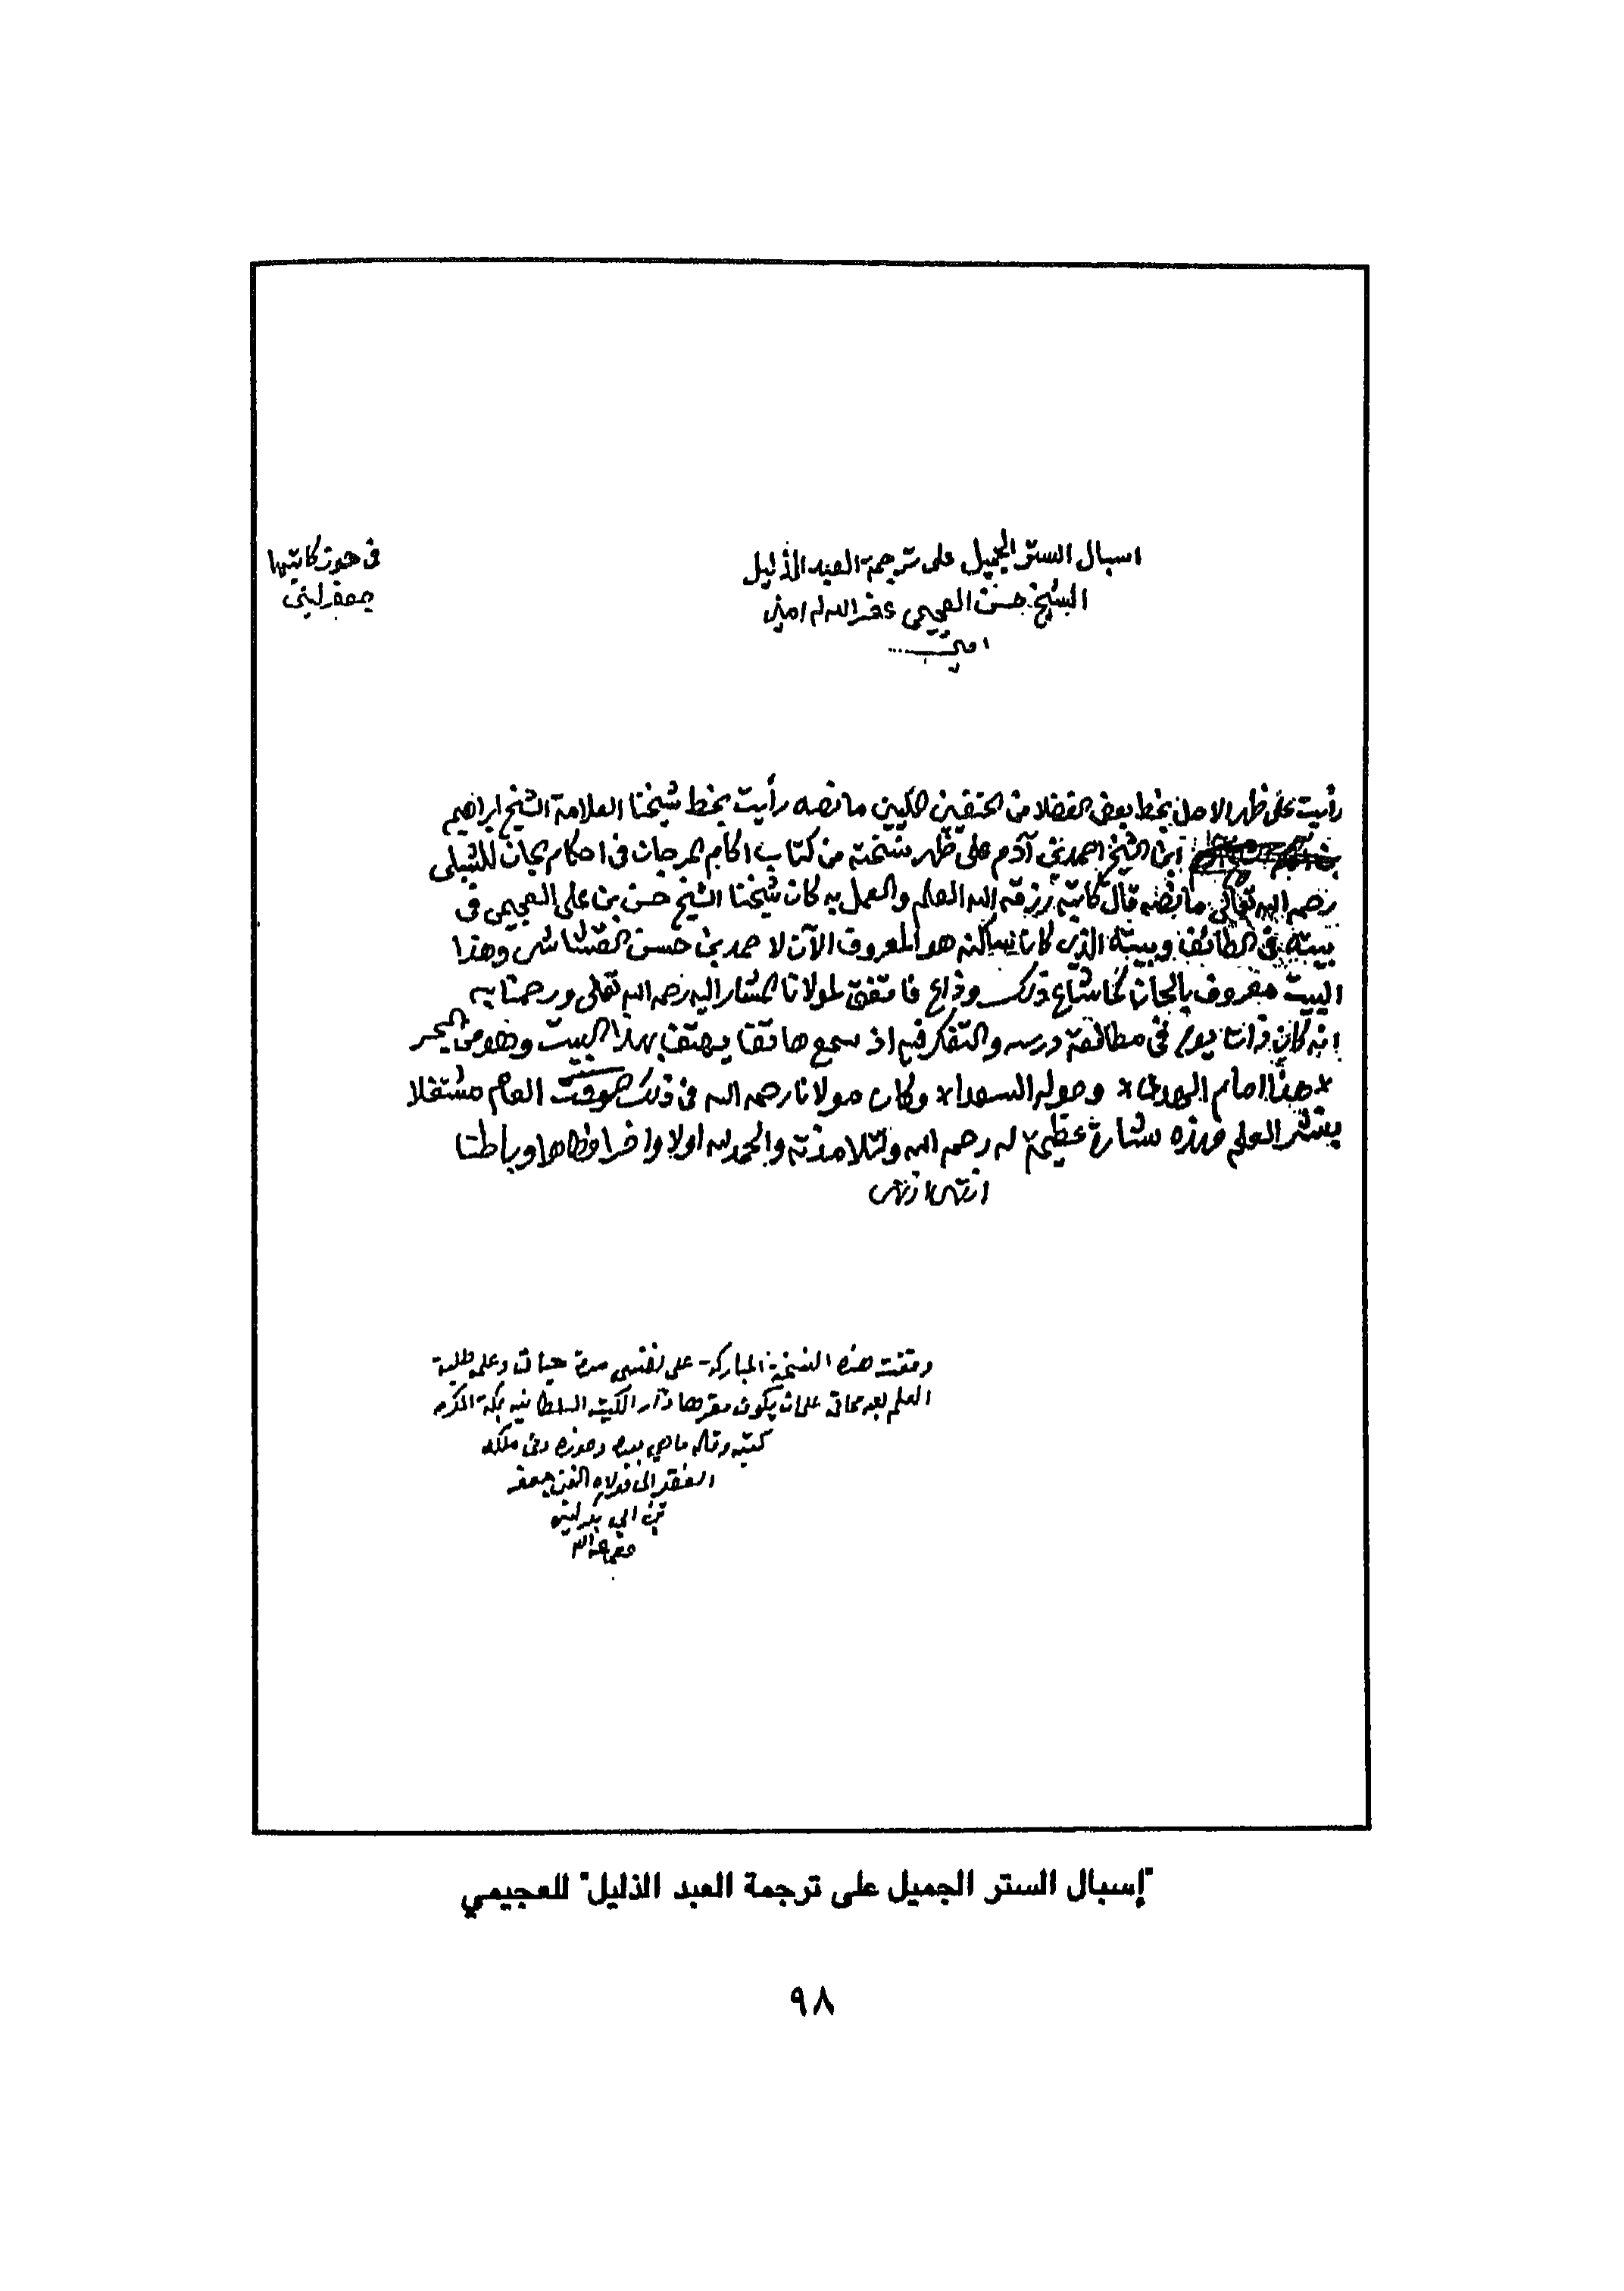 اسبال الستر الجميل على ترجمة العبد الذليل
الشيخ حسن العجيمي غفر الله له امين
امين
في حوز كاتبها
جعفر لبني
رأيت على ظهر الاصل بخط بعض الفضلا من الحنفيين المكيين ما نصه رأيت بخط شيخنا العلامة الشيخ ابراهيم
ابن الشيخ احمد بن آدم على ظهر نسخته من كتاب اكام المرجان في احكام الجان للشبلي
رحمه الله تعالى ما نصه قال كاتبه رزقه الله العلم والعمل به كان شيخنا الشيخ حسن بن علي العجيمي في
بيته في الطائف وبيته الذي كان ساكنه هو المعروف الآن لاحمد بن حسن القشاشي وهذا
البيت معروف بالجان كما شاع ذلك وذاع فاتفق لمولانا المشار اليه رحمه الله تعالى ورحمنا به
انه كان ذات يوم في مطالعة درسه والتفكر فيه اذ سمع هاتفا يهتف بهذا البيت وهو من البحر
* هذا امام الهدى * وحوله السعدا * وكان مولانا رحمه الله في ذلك الوقت العام مشتغلا
بنشر العلم وهذه بشارة عظيمة له رحمه الله ولتلامذته والحمد لله اولا واخرا وظاهرا وباطنا
انتهى انتهى
وقفت هذه النسخة المباركة على نفسي مدة حياتي وعلى طلبة
العلم بعد مماتي على ان يكون مقرها دار الكتب السلطانيه بمكة المكرمه
كتبه وقاله ما هي بيده وحوزه وفي ملكه
الفقير الى مولاه الغني جعفر
بن ابي بكر لبني
عفى عنه الله
"إسبال الستر الجميل على ترجمة العبد الذليل" للعجيمي
٩٨